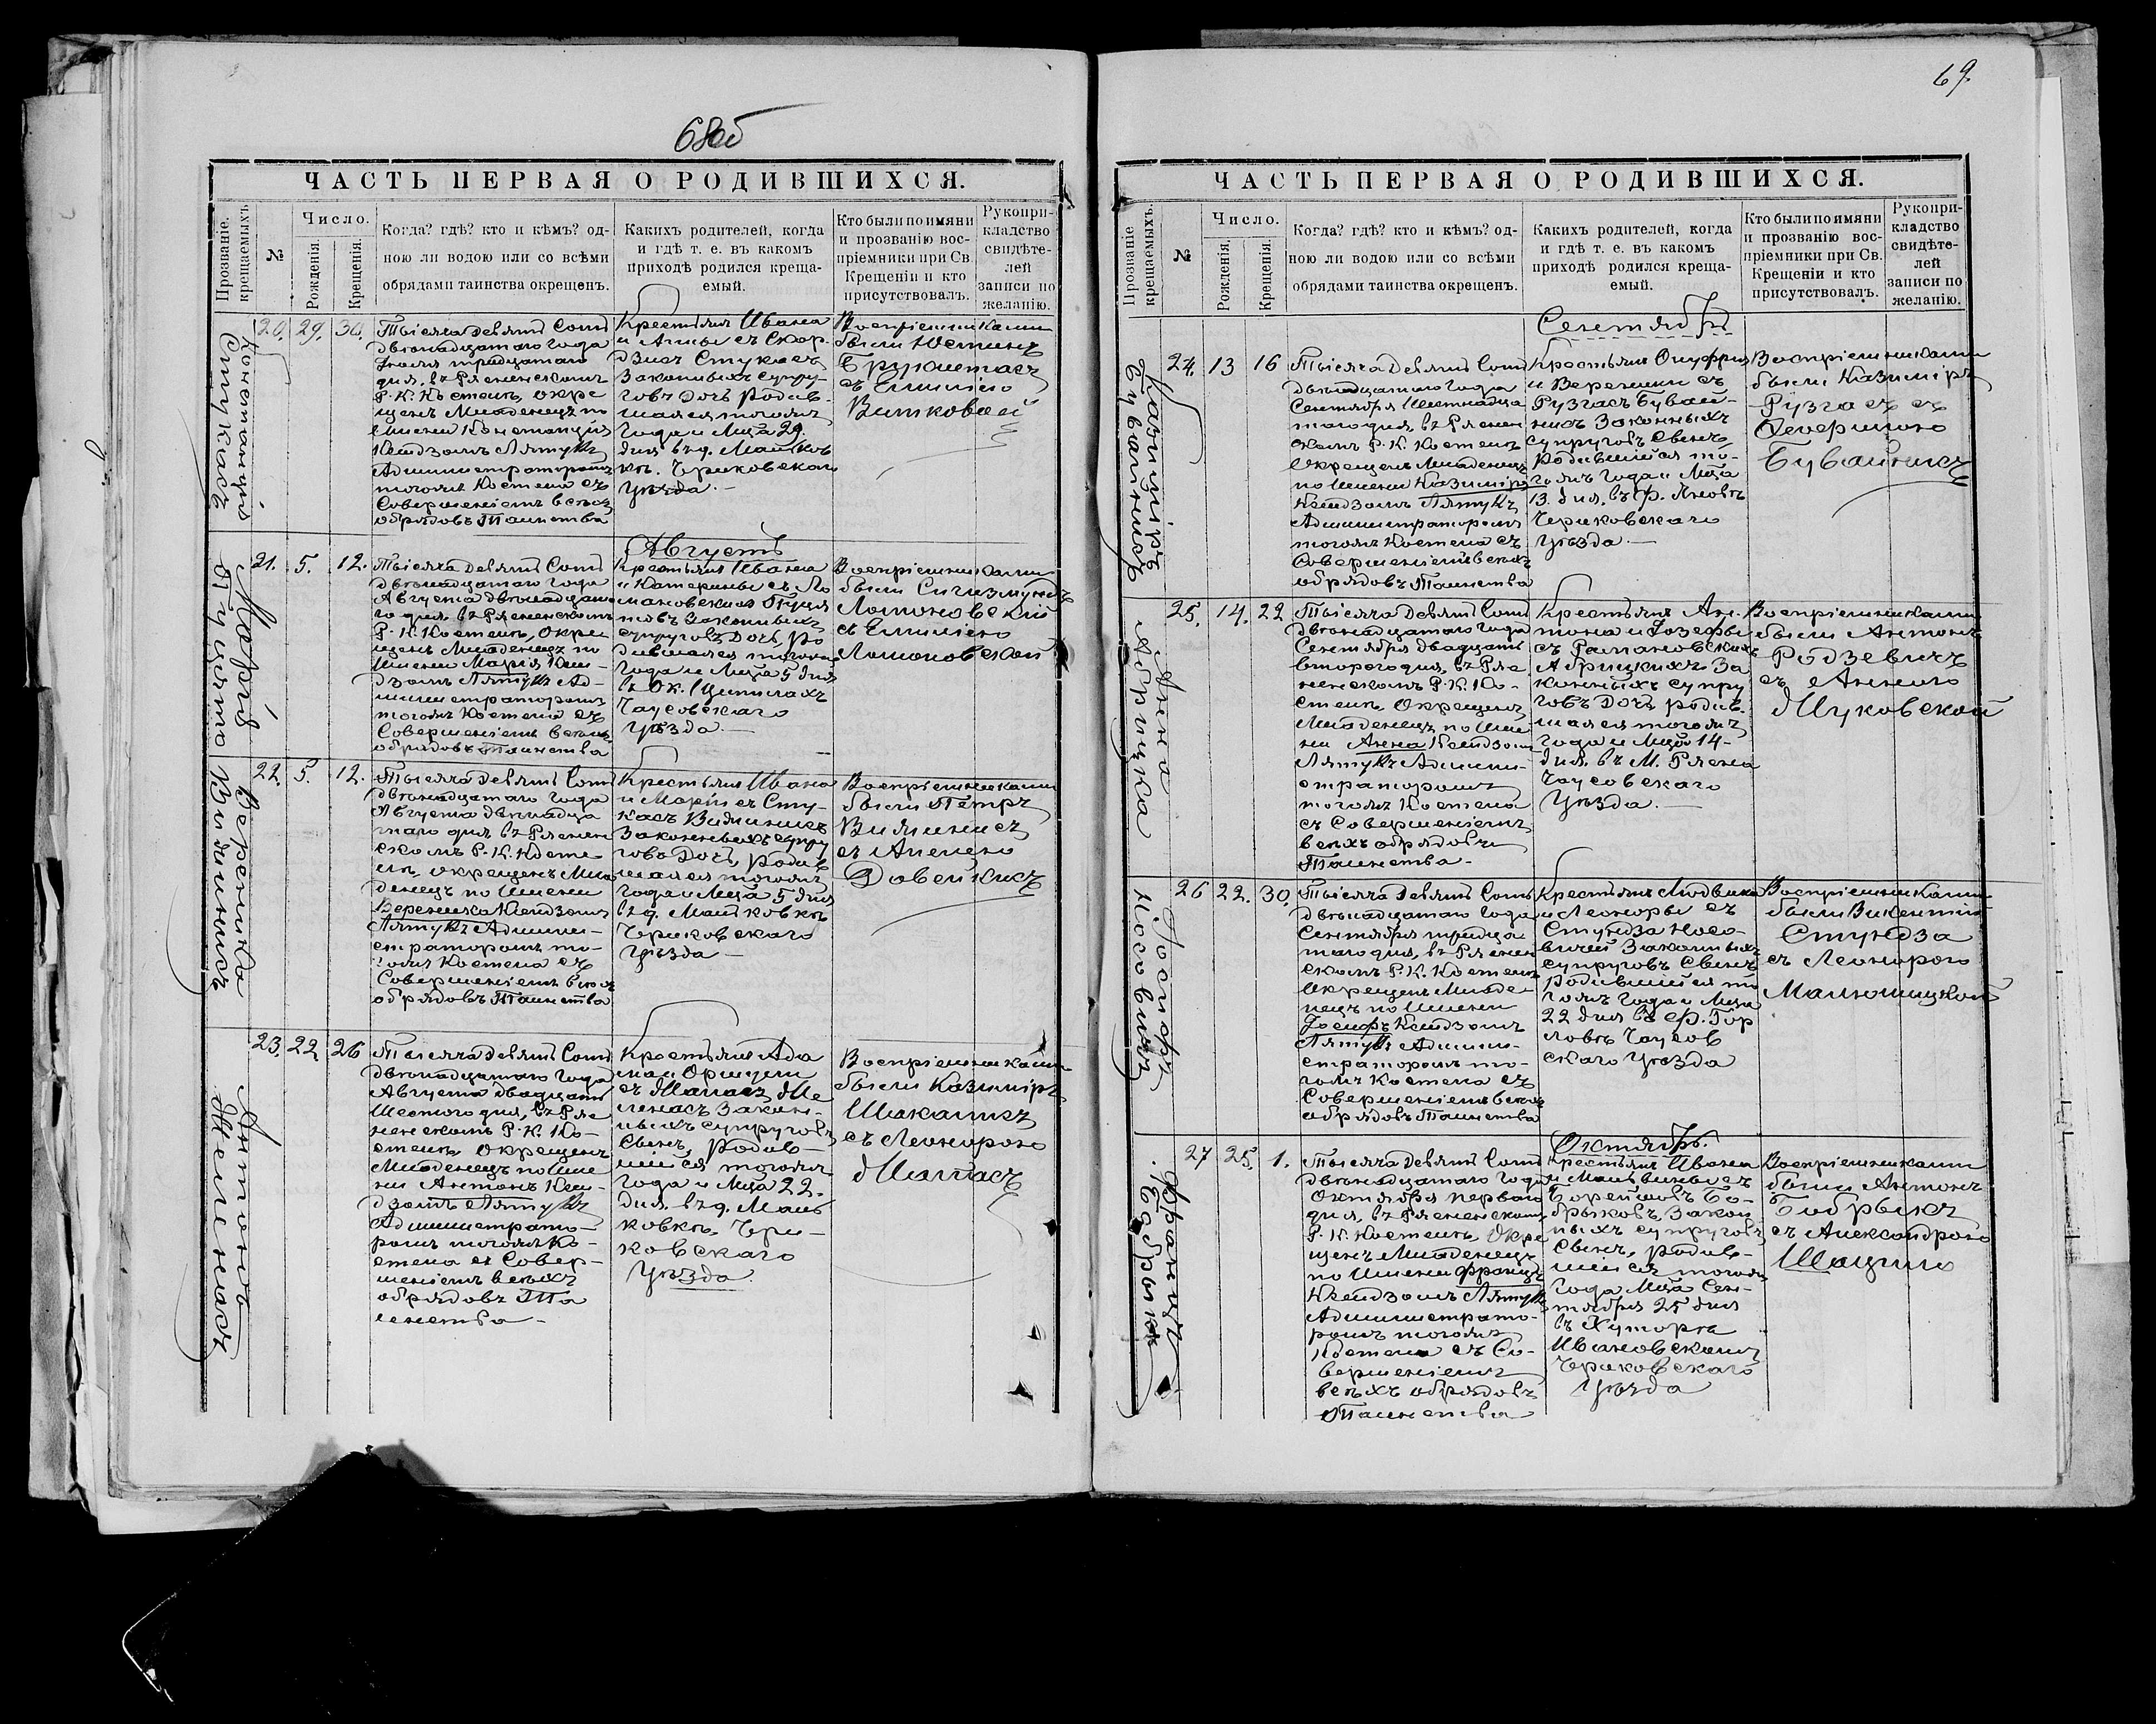 68об
ЧАСТЬ ПЕРВАЯ О РОДИВШИХСЯ.
Прозваніе крещаемыхъ.
№
Число.
Рожденія.
Крещенія.
Когда? гдѣ? кто и кѣмъ? од-
ною ли водою или со всѣми
обрядами таинства окрещенъ.
Какихъ родителей, когда
и гдѣ т. е. въ какомъ
приходѣ родился креща-
емый.
Кто были по имяни
и прозванію вос-
пріемники при Св.
Крещеніи и кто
присутствовалъ.
Рукопри-
кладство
свидѣте-
лей
записи по
желанію.
Констанція
Стукасъ
20. 29. 30.
Тысяча девятьсотъ
двѣнадцатаго года
тридцатаго
дня, въ Рясненскомъ
Р. К. Костелѣ, окре
щенъ Младенецъ по
имени Констанція
Ксендзомъ Лятукъ
Администраторомъ
тогожъ Костела съ
Совершеніемъ всѣхъ
обрядовъ Таинства
Крестьянъ Ивана
и Анны съ Скор
дзисъ Стукасъ
Законныхъ супру-
говъ дочь родив-
шаяся тогожъ
Года и Мѣца 29.
дня въ д. Маньков
кѣ. Чериковскаго
Уѣзда.—
Воспріемниками
были Юстинъ
съ Емиліею
Витковой
Августъ
Марія
Пуцято
21. 5. 12.
Тысяча девятьсотъ
двѣнадцатаго года
Августа двѣнадцата
го дня, въ Рясненскомъ
Р. К. Костелѣ, Окре
щенъ Младенецъ по
имени Марія Ксен-
дзомъ Лятукъ Ад-
министраторомъ
тогожъ Костела съ
Совершеніемъ всѣхъ
обрядовъ Таинства
Крестьянъ Ивана
и Катерины съ Ло
мановскихъ Пуця
товъ Законныхъ
супруговъ Дочь, ро
дившаяся тогожъ
Года и Мѣца 5 дня
въ Ок.
Чаусовскаго
Уѣзда.—
Воспріемниками
были Сигизмундъ
Ломоновскій
съ Емиліею
Ломоновской
Вероника
Видминисъ
22. 5. 12.
Тысяча девятьсотъ
двѣнадцатаго года
Августа двѣнадца
таго дня въ Ряснен
скомъ Р. К. Косте
лѣ, окрещенъ Мла
денецъ по имени
Вероника Ксендзомъ
Лятукъ Админи-
страторомъ то-
гожъ Костела съ
Совершеніемъ всѣхъ
обрядовъ Таинства
Крестьянъ Ивана
и Маріи съ Сту-
касъ Видминисъ
Законныхъ супру
говъ Дочь, родив
шаяся тогожъ
Года и Мѣца 5 дня
въ д. Маньковкѣ
Чериковскаго
Уѣзда—
Воспріемниками
были Петръ
Видминисъ
съ Анелею
Довейкисъ
Антонъ
Мелнасъ
23. 22. 26
Тысяча девятьсотъ
двѣнадцатаго года
Августа двадцать
Шестого дня, въ Ряс
ненскомъ Р. К. Ко-
стелѣ, Окрещенъ
Младенецъ по име
ни Антонъ Ксен-
дзомъ Лятукъ
Администрато-
ромъ тогожъ Ко-
стела съ Совер-
шеніемъ всѣхъ
обрядовъ Та
инства—
Крестьянъ Ада
ма и Оршули
съ Матасъ Ме
лнасъ Закон-
ныхъ супруговъ
Сынъ, Родив-
шійся тогожъ
Года и Мѣца 22.
дня въ д. Мань
ковкѣ, Чери-
ковскаго
Уѣзда.
Воспріемниками
были Казимиръ
съ Леонорою
Матасъ
69.
ЧАСТЬ ПЕРВАЯ О РОДИВШИХСЯ.
Прозваніе крещаемыхъ.
№
Число.
Рожденія.
Крещенія.
Когда? гдѣ? кто и кѣмъ? од-
ною ли водою или со всѣми
обрядами таинства окрещенъ.
Какихъ родителей, когда
и гдѣ т. е. въ какомъ
приходѣ родился креща-
емый.
Кто были по имяни
и прозванію вос-
пріемники при Св.
Крещеніи и кто
присутствовалъ.
Рукопри-
кладство
свидѣте-
лей
записи по
желанію.
Сентябрь
Казимиръ
Бувайнисъ
24. 13 16
Тысяча девятьсотъ
двѣнадцатаго года
Сентября Шестнадца
таго дня, въ Ряснен
скомъ Р. К. Костелѣ
Окрещенъ Младенецъ
по имени Казимиръ
Ксендзомъ Лятукъ
Администраторомъ
тогожъ Костела съ
Совершеніемъ всѣхъ
обрядовъ Таинства
Крестьянъ Онуфрія
и Вероники съ
Рузгасъ Бувай-
нисъ Законныхъ
супруговъ Сынъ
родившійся то-
гожъ Года и Мѣца
13. дня, въ ф. Яновѣ
Чериковскаго
Уѣзда.—
Воспріемниками
были Казимиръ
Рузгасъ съ
Северыною
Бувайнисъ
Анна
Абрицка
25. 14. 22
Тысяча девятьсотъ
двѣнадцатаго года
Сентября двадцать
второго дня, въ Ряс
ненскомъ Р. К. Ко-
стелѣ, Окрещенъ
Младенецъ по име
ни Анна Ксендзомъ
Лятукъ Админи-
страторомъ
тогожъ Костела
съ Совершеніемъ
всѣхъ обрядовъ
Таинства—
Крестьянъ Ан-
тона и Іозефы
съ Рамановскихъ
Абрицкихъ За
конныхъ супру
говъ Дочь, родив
шаяся тогожъ
Года и Мѣца 14-
дня, въ М. Рясна
Чаусовскаго
Уѣзда.—
Воспріемниками
были Антонъ
Родзевичъ
съ Анною
Жуковской
Іосифъ
Носовичъ
26 22. 30.
Тысяча девятьсотъ
двѣнадцатаго года
Сентября тридца
таго дня, въ Ряснен
скомъ Р. К. Костелѣ
Окрещенъ Младе-
нецъ по имени
Іосифъ Ксендзомъ
Лятукъ Админи-
страторомъ то-
гожъ Костела съ
Совершеніемъ всѣхъ
обрядовъ Таинства
Крестьянъ Людвика
и Леоноры съ
Стундза Носо-
вичей Законныхъ
супруговъ Сынъ
родившійся то
гожъ Года и Мѣца
22 дня въ ф. Гор
ловѣ Чаусов
скаго Уѣзда
Воспріемниками
были Викентій
Стундза
съ Леонорою
Октябрь.
Францъ
Бобрыкъ
27 25. 1.
Тысяча девятьсотъ
двѣнадцатаго года
Октября перваго
дня, въ Рясненскомъ
Р. К. Костелѣ, Окре
щенъ Младенецъ
по имени Францъ
Ксендзомъ Лятукъ
Администрато-
ромъ тогожъ
Костела съ Со-
вершеніемъ
всѣхъ обрядовъ
Таинства
Крестьянъ Ивана
и Мальвины съ
Борейшовъ Бо-
брыковъ, Закон
ныхъ супруговъ
Сынъ, родив-
шійся тогожъ
Года Мѣца Сен-
тября 25 дня
въ Хуторѣ
Ивановскомъ
Чериковскаго
Уѣзда
Воспріемниками
были Антонъ
Бобрыкъ
съ Александрою